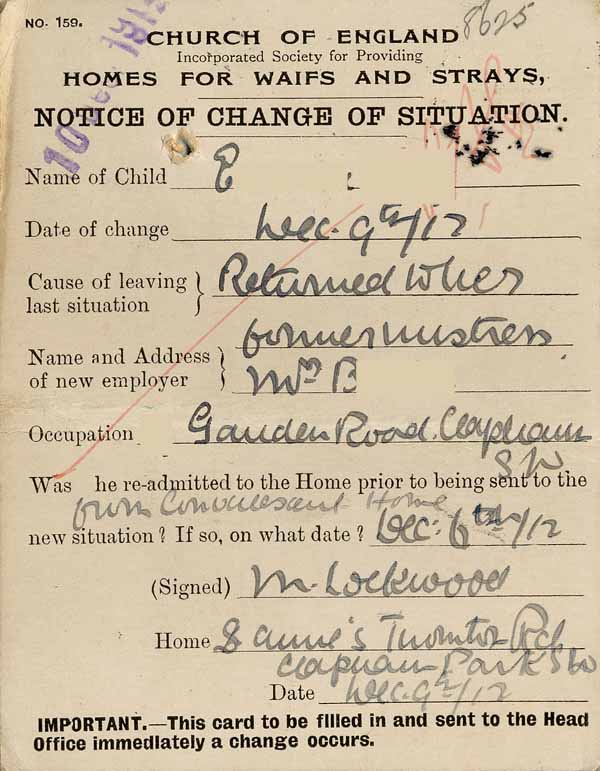 NO. 159.
8625
CHURCH OF ENGLAND
Incorporated Society for Providing
HOMES FOR WAIFS AND STRAYS,
NOTICE OF CHANGE OF SITUATION.
Name of Child E
Date of change Dec. 9th/12
Cause of leaving last situation } Returned to her
former mistress
Name and Address of new employer } Mrs B
Occupation Gauden Road. Clapham
S W
Was he re-admitted to the Home prior to being sent to the
from Convalescent Home
new situation? If so, on what date? Dec: 6th/12
(Signed) M. Lockwood
Home S Anne's Thornton Rd
Clapham Park S W
Date Dec. 9th/12
IMPORTANT.—This card to be filled in and sent to the Head
Office immediately a change occurs.